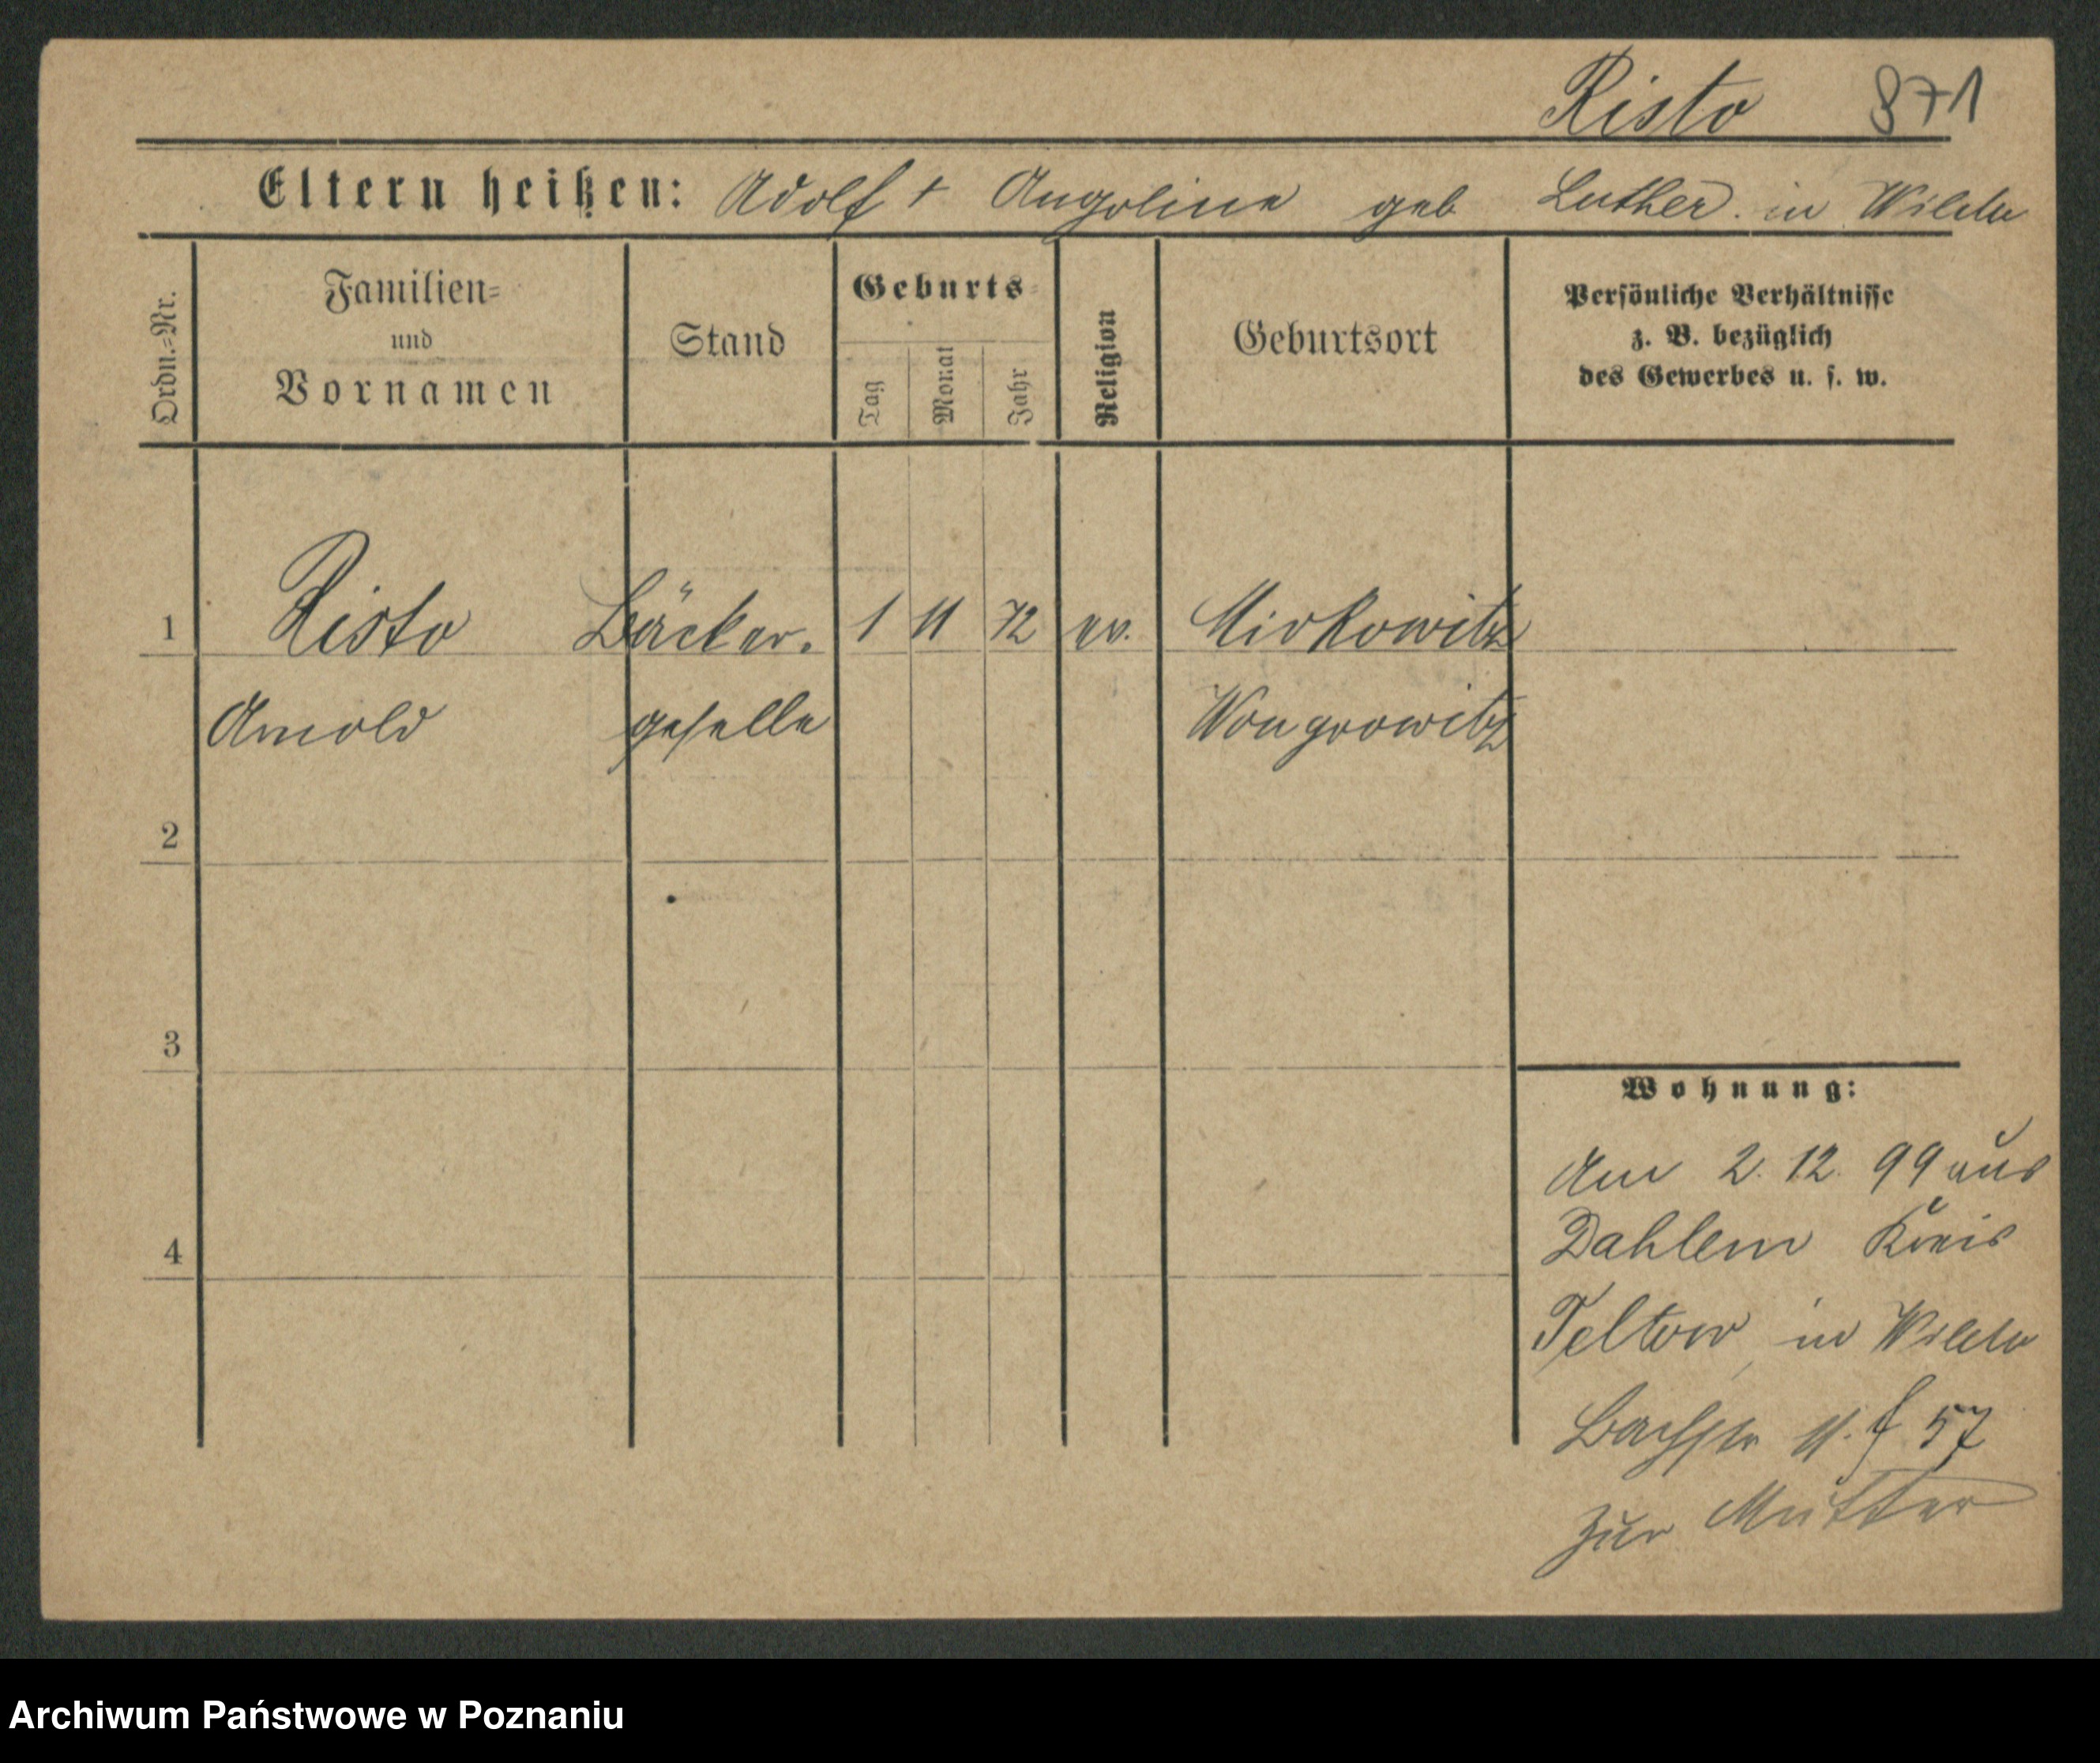 Risto 871
Eltern heißen: Adolf + Angeline geb Luther. in Wilda
Ordn.=Nr.
Familien=
und
Vornamen
Stand
Geburts=
Tag
Monat
Jahr
Religion
Geburtsort
Persönliche Verhältnisse
z. B. bezüglich
des Gewerbes u. s. w.
1 Risto Bäcker. 1 11 72 ev. Mirkowitz
Arnold geselle Wongrowitz
2
3
4
Wohnung:
Am 2. 12. 99 aus
Dahlem Kreis
Teltow in Wilda
Bachstr 11. f 57
zur Mutter
Archiwum Państwowe w Poznaniu